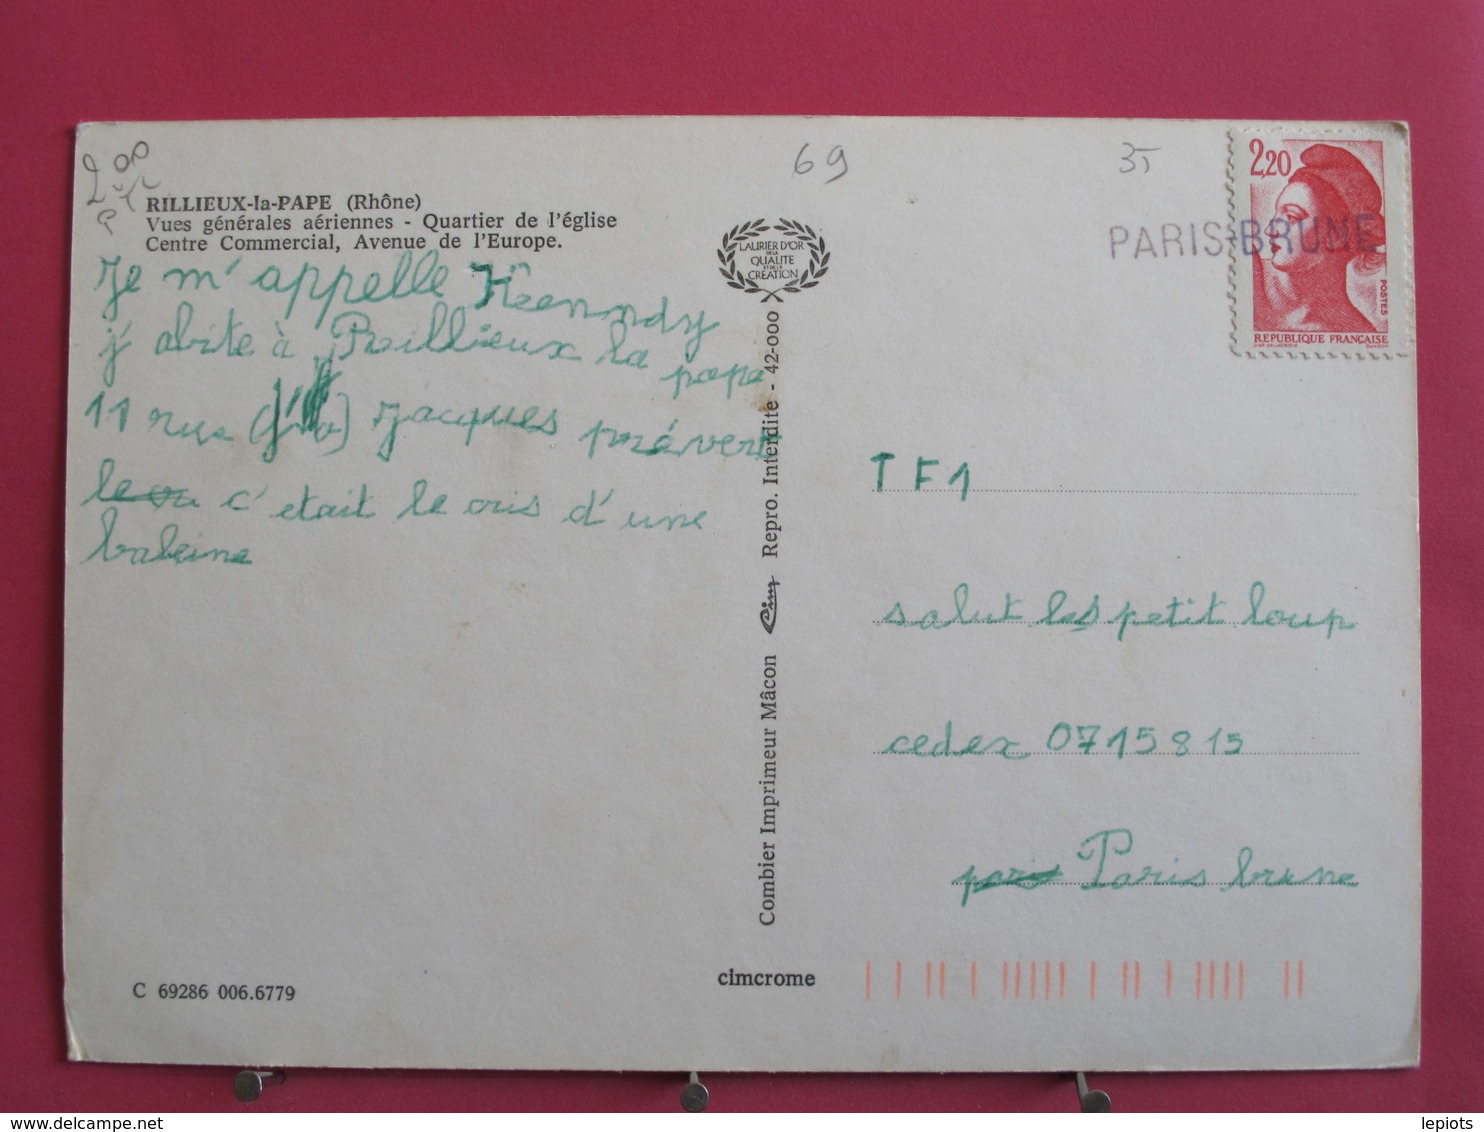 69
35
2,20
RILLIEUX-la-PAPE (Rhône)
Vues générales aériennes - Quartier de l'église
Centre Commercial, Avenue de l'Europe.
LAURIER D'OR
DE LA
QUALITE
ET DE LA
CREATION
PARIS-BRUNE
POSTES
REPUBLIQUE FRANÇAISE
Je m'appelle
j'abite à Rillieux la pape
11 rue Jacques prévert
c'etait le cris d'une
baleine
TF1
salut les petit loup
cedex 0715815
pari Paris brune
Combier Imprimeur Mâcon Cim Repro. Interdite - 42-000
cimcrome
C 69286 006.6779
delcampe.net
lepiots